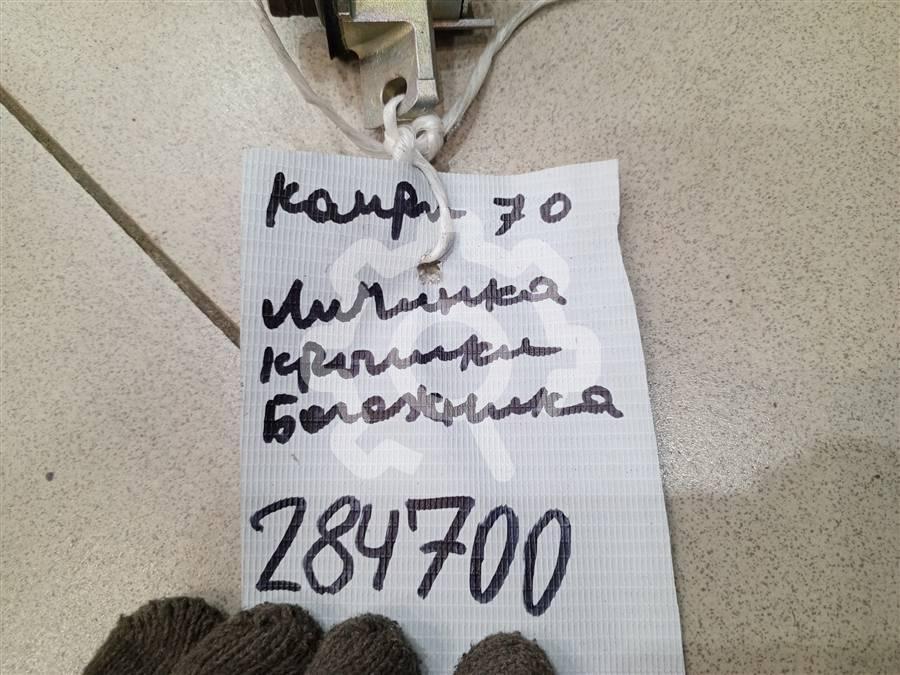 Камри 70
Личинка
крышки
Багажника
284700